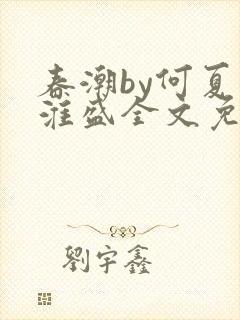 春潮by何夏
淮盛全文免
劉宇鑫